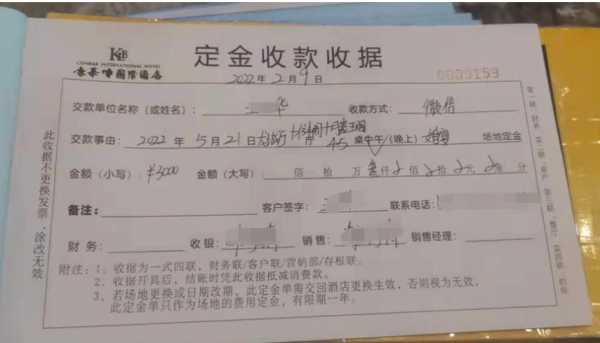 KB
定金收款收据
2022年2月9日
0000159
交款单位名称（或姓名）： 华 收款方式： 微信
交款事由： 2022 年 5月21日 45 桌中午/（晚上） 场地定金
金额（小写） ¥3000 金额（大写） 佰 拾 万 叁仟 佰 拾 元 角 分
备注： 客户签字： 联系电话：
财务： 收银： 销售： 销售经理：
附注：1、收据为一式四联，财务联/客户联/营销部/存根联。
2、收据开具后，结账时凭此收据抵减消费款。
3、若场地更换或日期改期，此定金单需交回酒店更换生效，否则视为无效，
此定金单只作为场地的费用定金，有限期一年。
此收据不更换发票，涂改无效